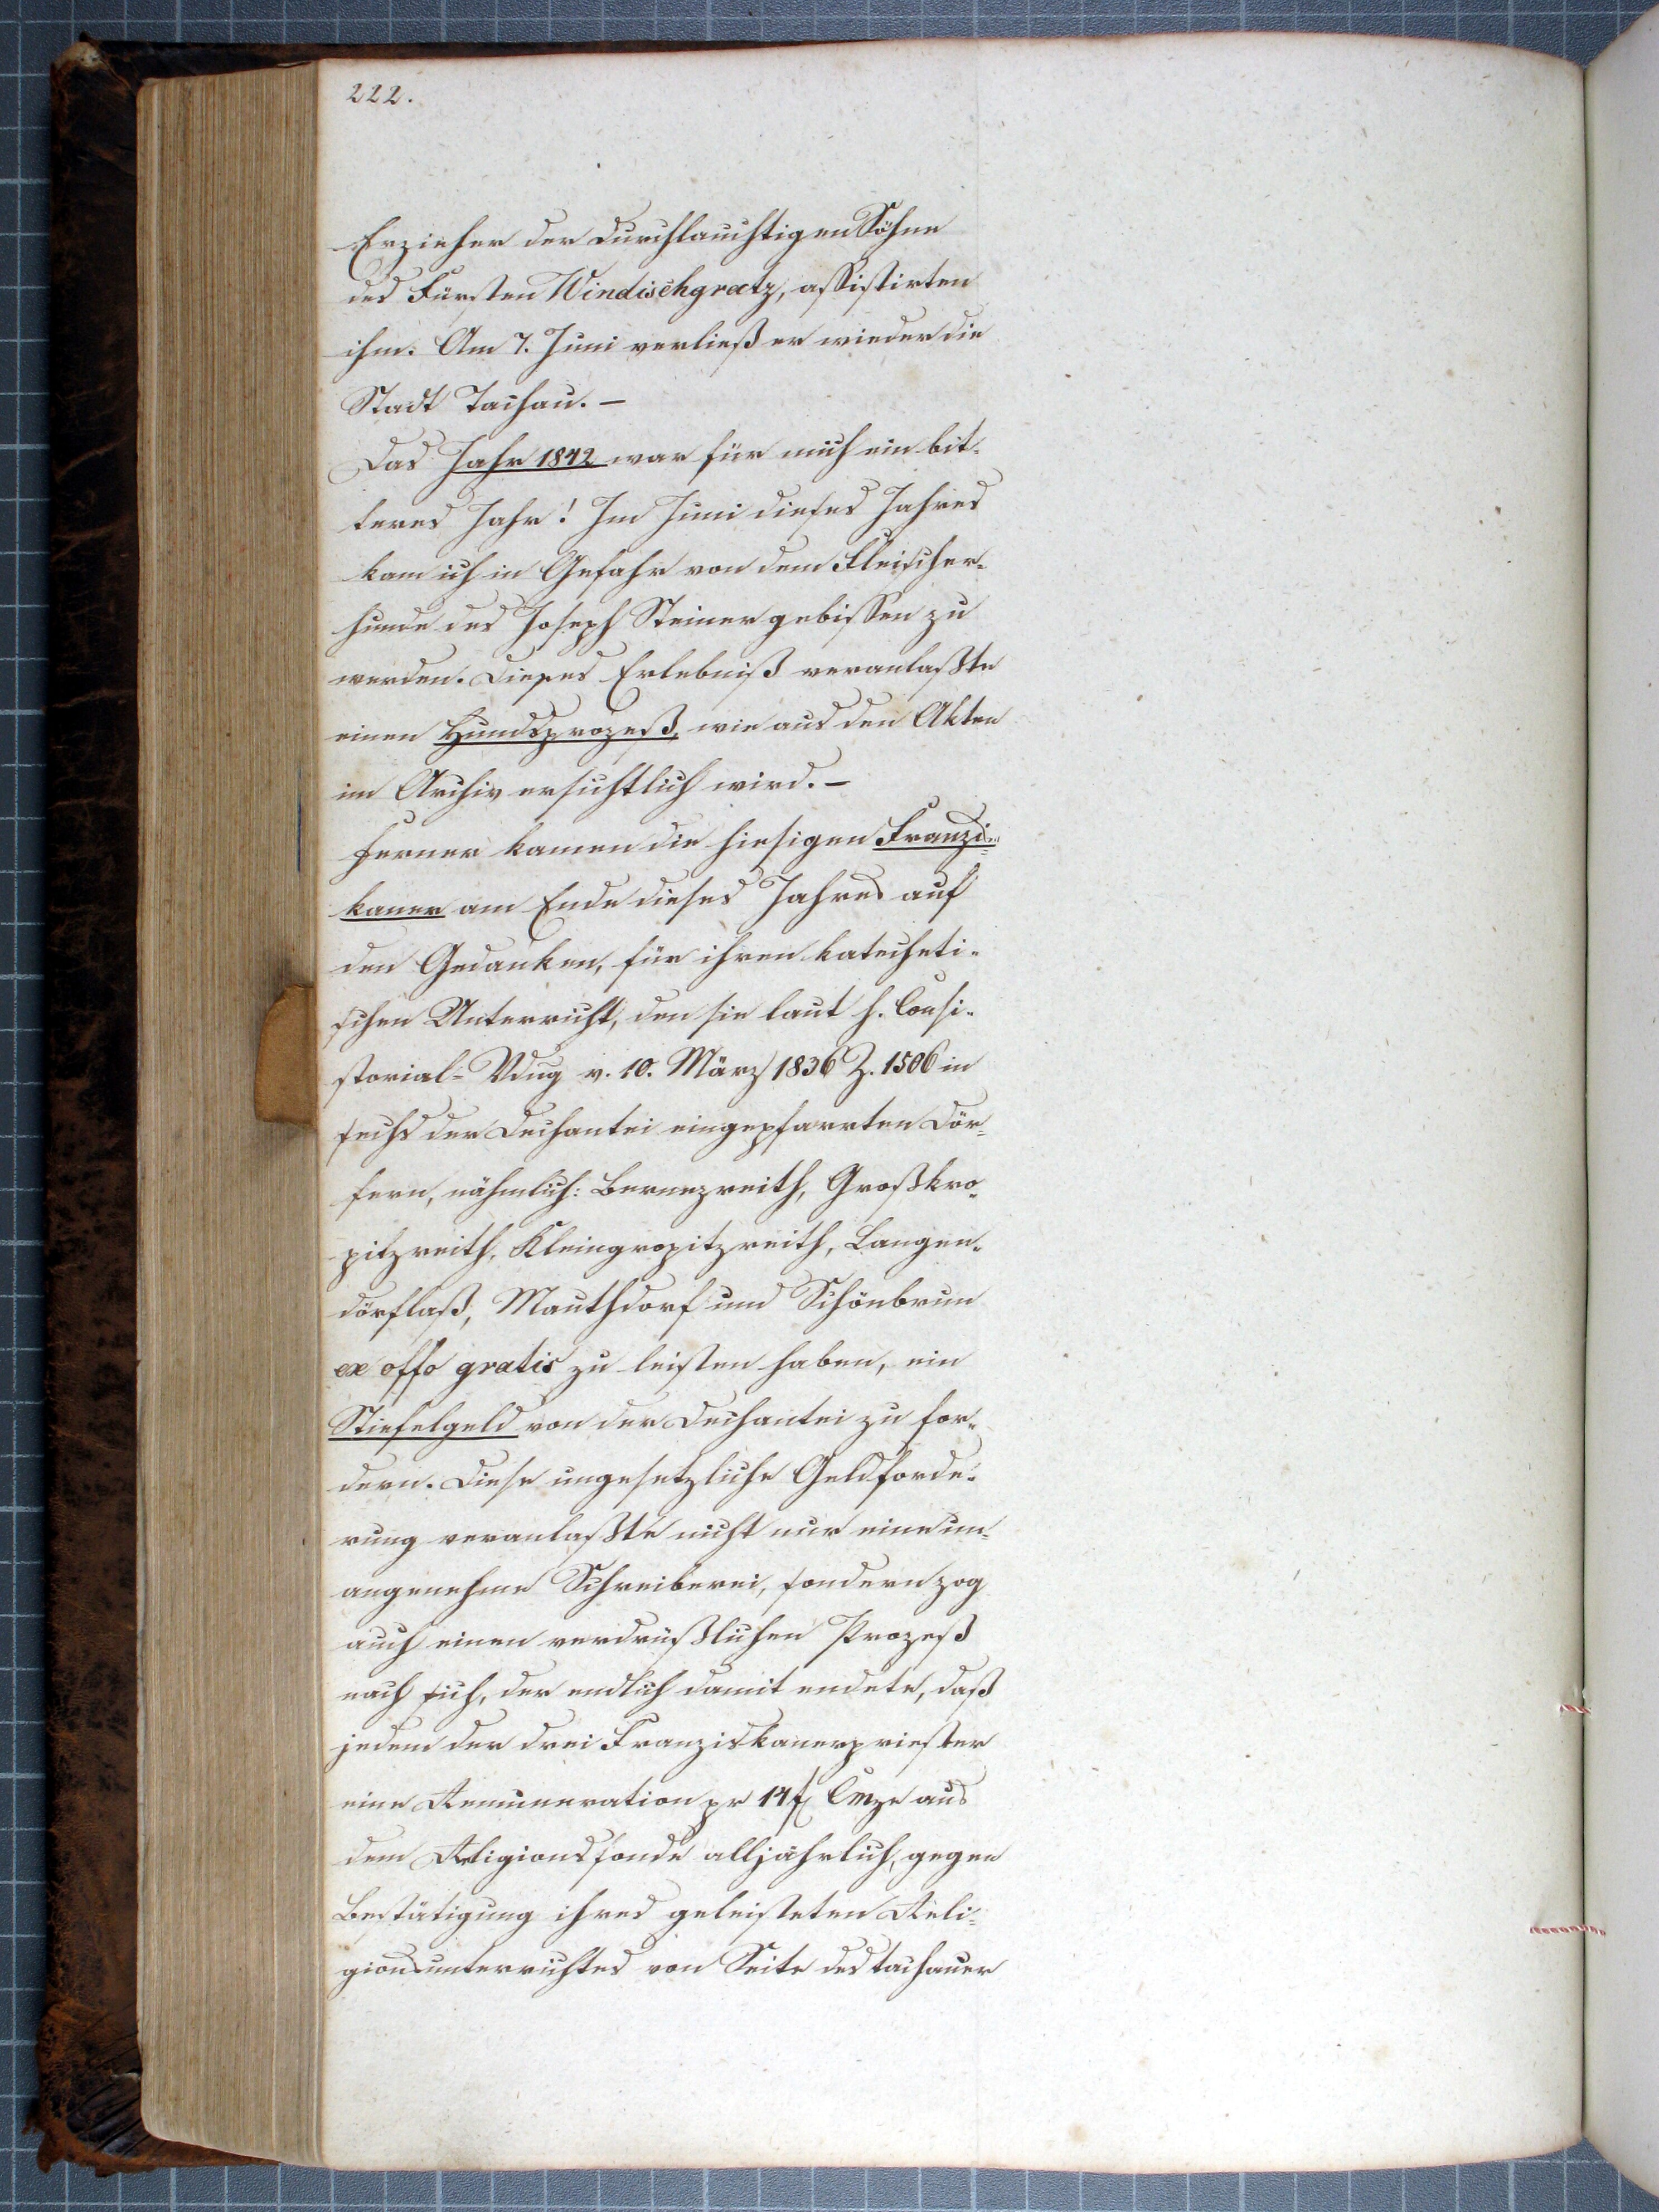 222.
Erzieher der durchlauchtigen Söhne
des Fürsten Windischgratz, assistirten
ihm. Am 7. Juni verließ er wieder die
Stadt Tachau. –
Das Jahr 1842 war für mich ein bit-
teres Jahr! Im Juni dieses Jahres
kam ich in Gefahr von dem Fleischer-
hunde des Joseph Steiner gebissen zu
werden. Dieses Erlebniß veranlaßte
einen Hundsprozeß, wie aus den Akten
im Archiv ersichtlich wird. –
Ferner kamen die hiesigen Franzis-
kaner am Ende dieses Jahres auf
den Gedanken, für ihren katecheti-
schen Unterricht, den sie laut h. Consi-
storial-Vdng v. 10. März 1836 Z. 1506 in
sechs der Dechantei eingepfarrten Dör-
fern, nähmlich: Bernezreith, Großkro-
pitzreith, Kleingropitzreith, Langen-
dörflaß, Mauthdorf und Schönbrun
ex offo gratis zu leisten haben, ein
Stiefelgeld von der Dechantei zu for-
dern. Diese ungesetzliche Geldforde-
rung veranlaßte nicht nur eine un-
angenehme Schreiberei, sondern zog
auch einen verdrüßlichen Prozeß
nach sich, der endlich damit endete, daß
jedem der drei Franziskanerpriester
eine Remuneration pr 14 f Cmze aus
dem Religionsfonde alljährlich, gegen
Bestätigung ihres geleisteten Reli-
gionsunterrichtes von Seite des tachauer